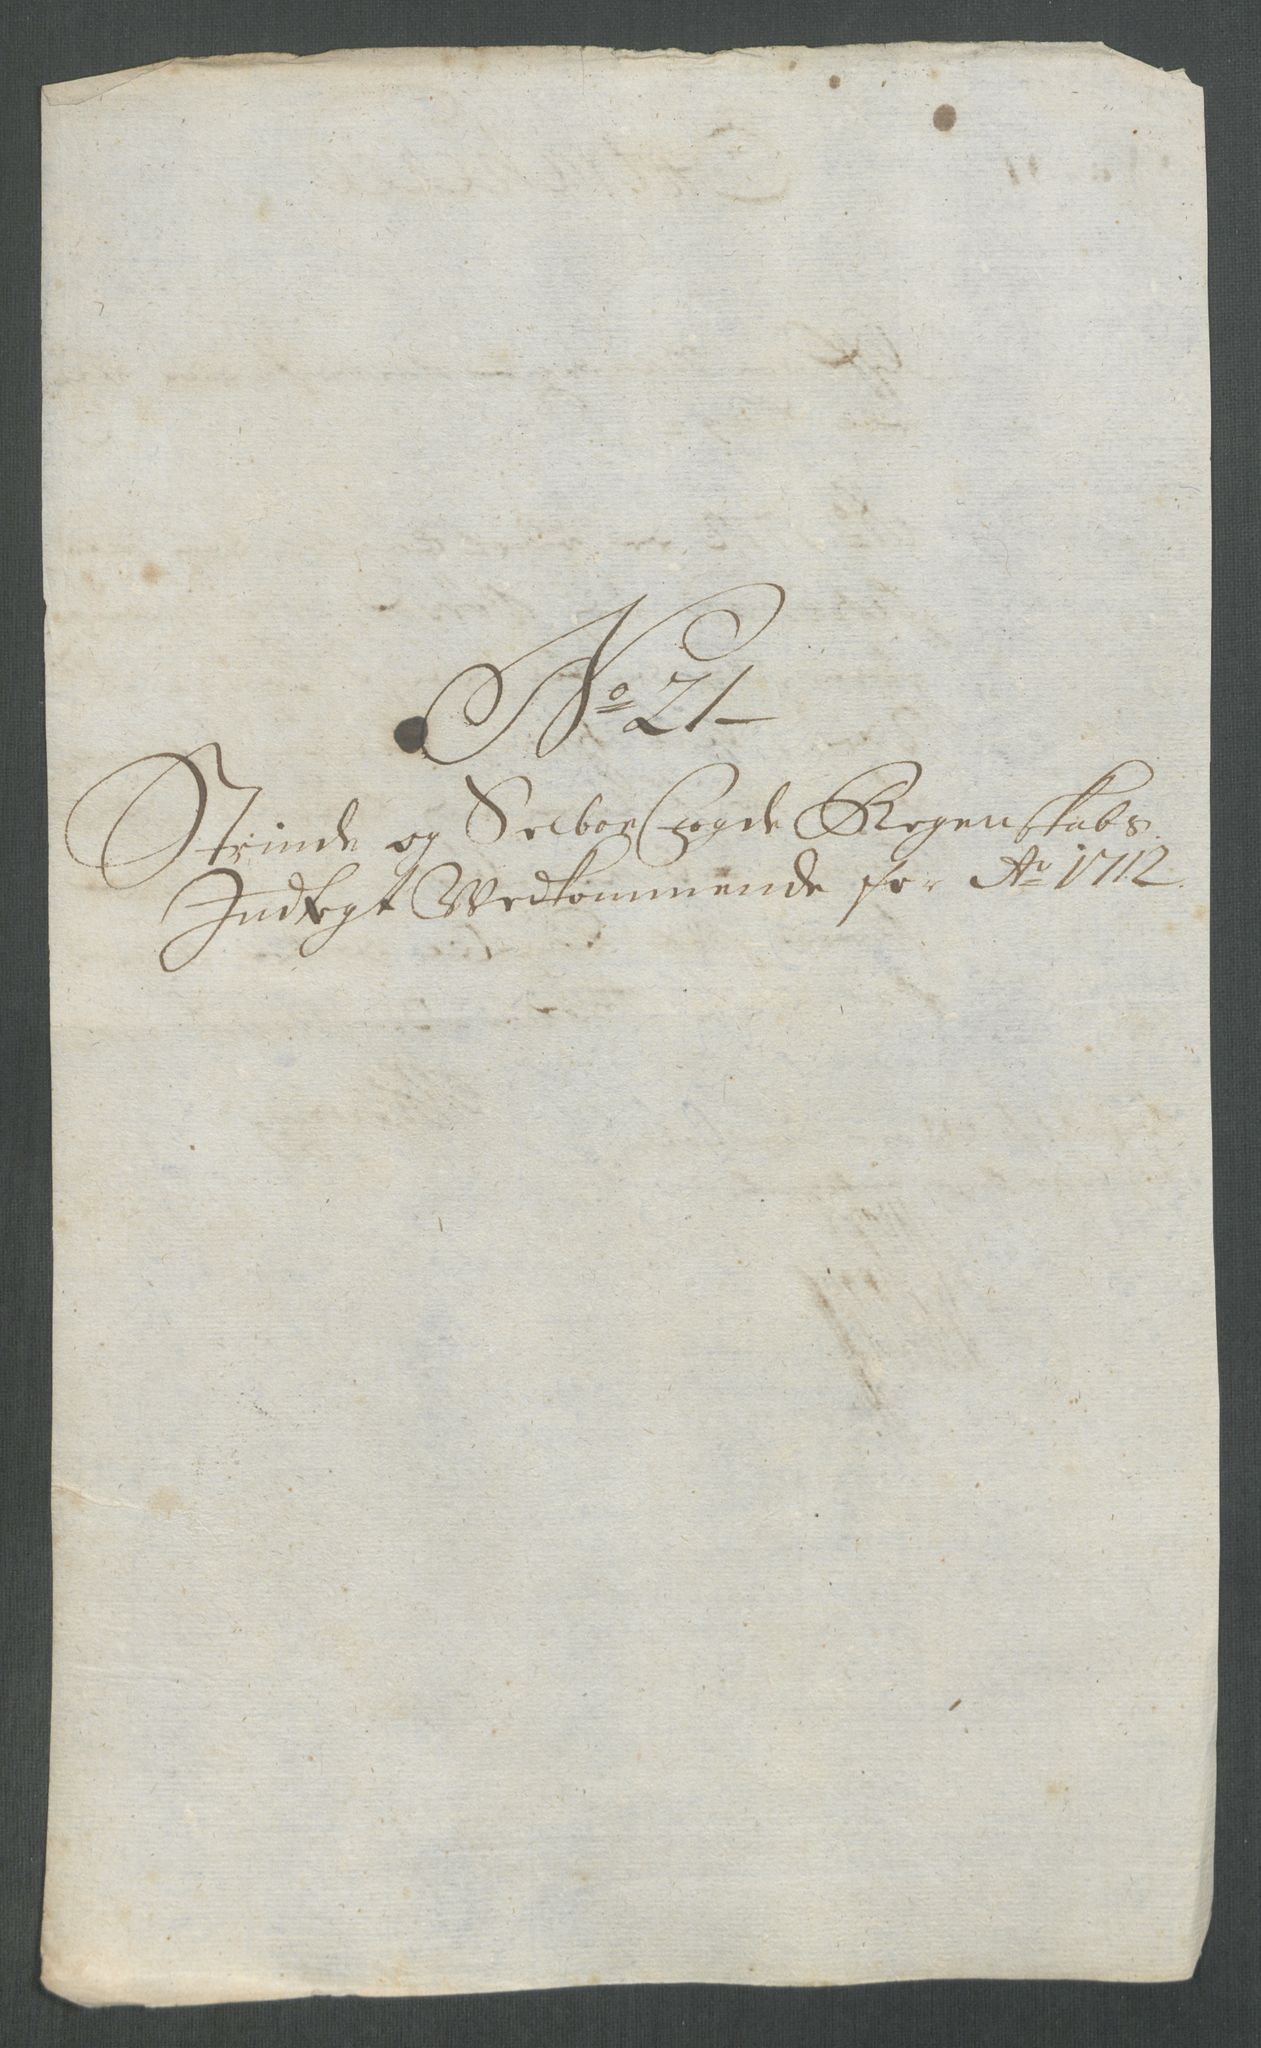 No 21
Strinde og Selboe fogde Regenskabs
Indtegt Vedkommende for Ao 1712.